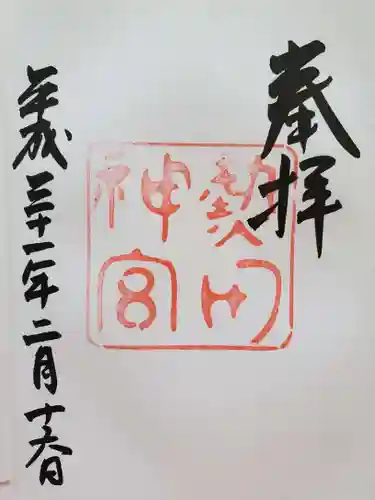 奉拝
熱田
神宮
平成三十一年二月十六日